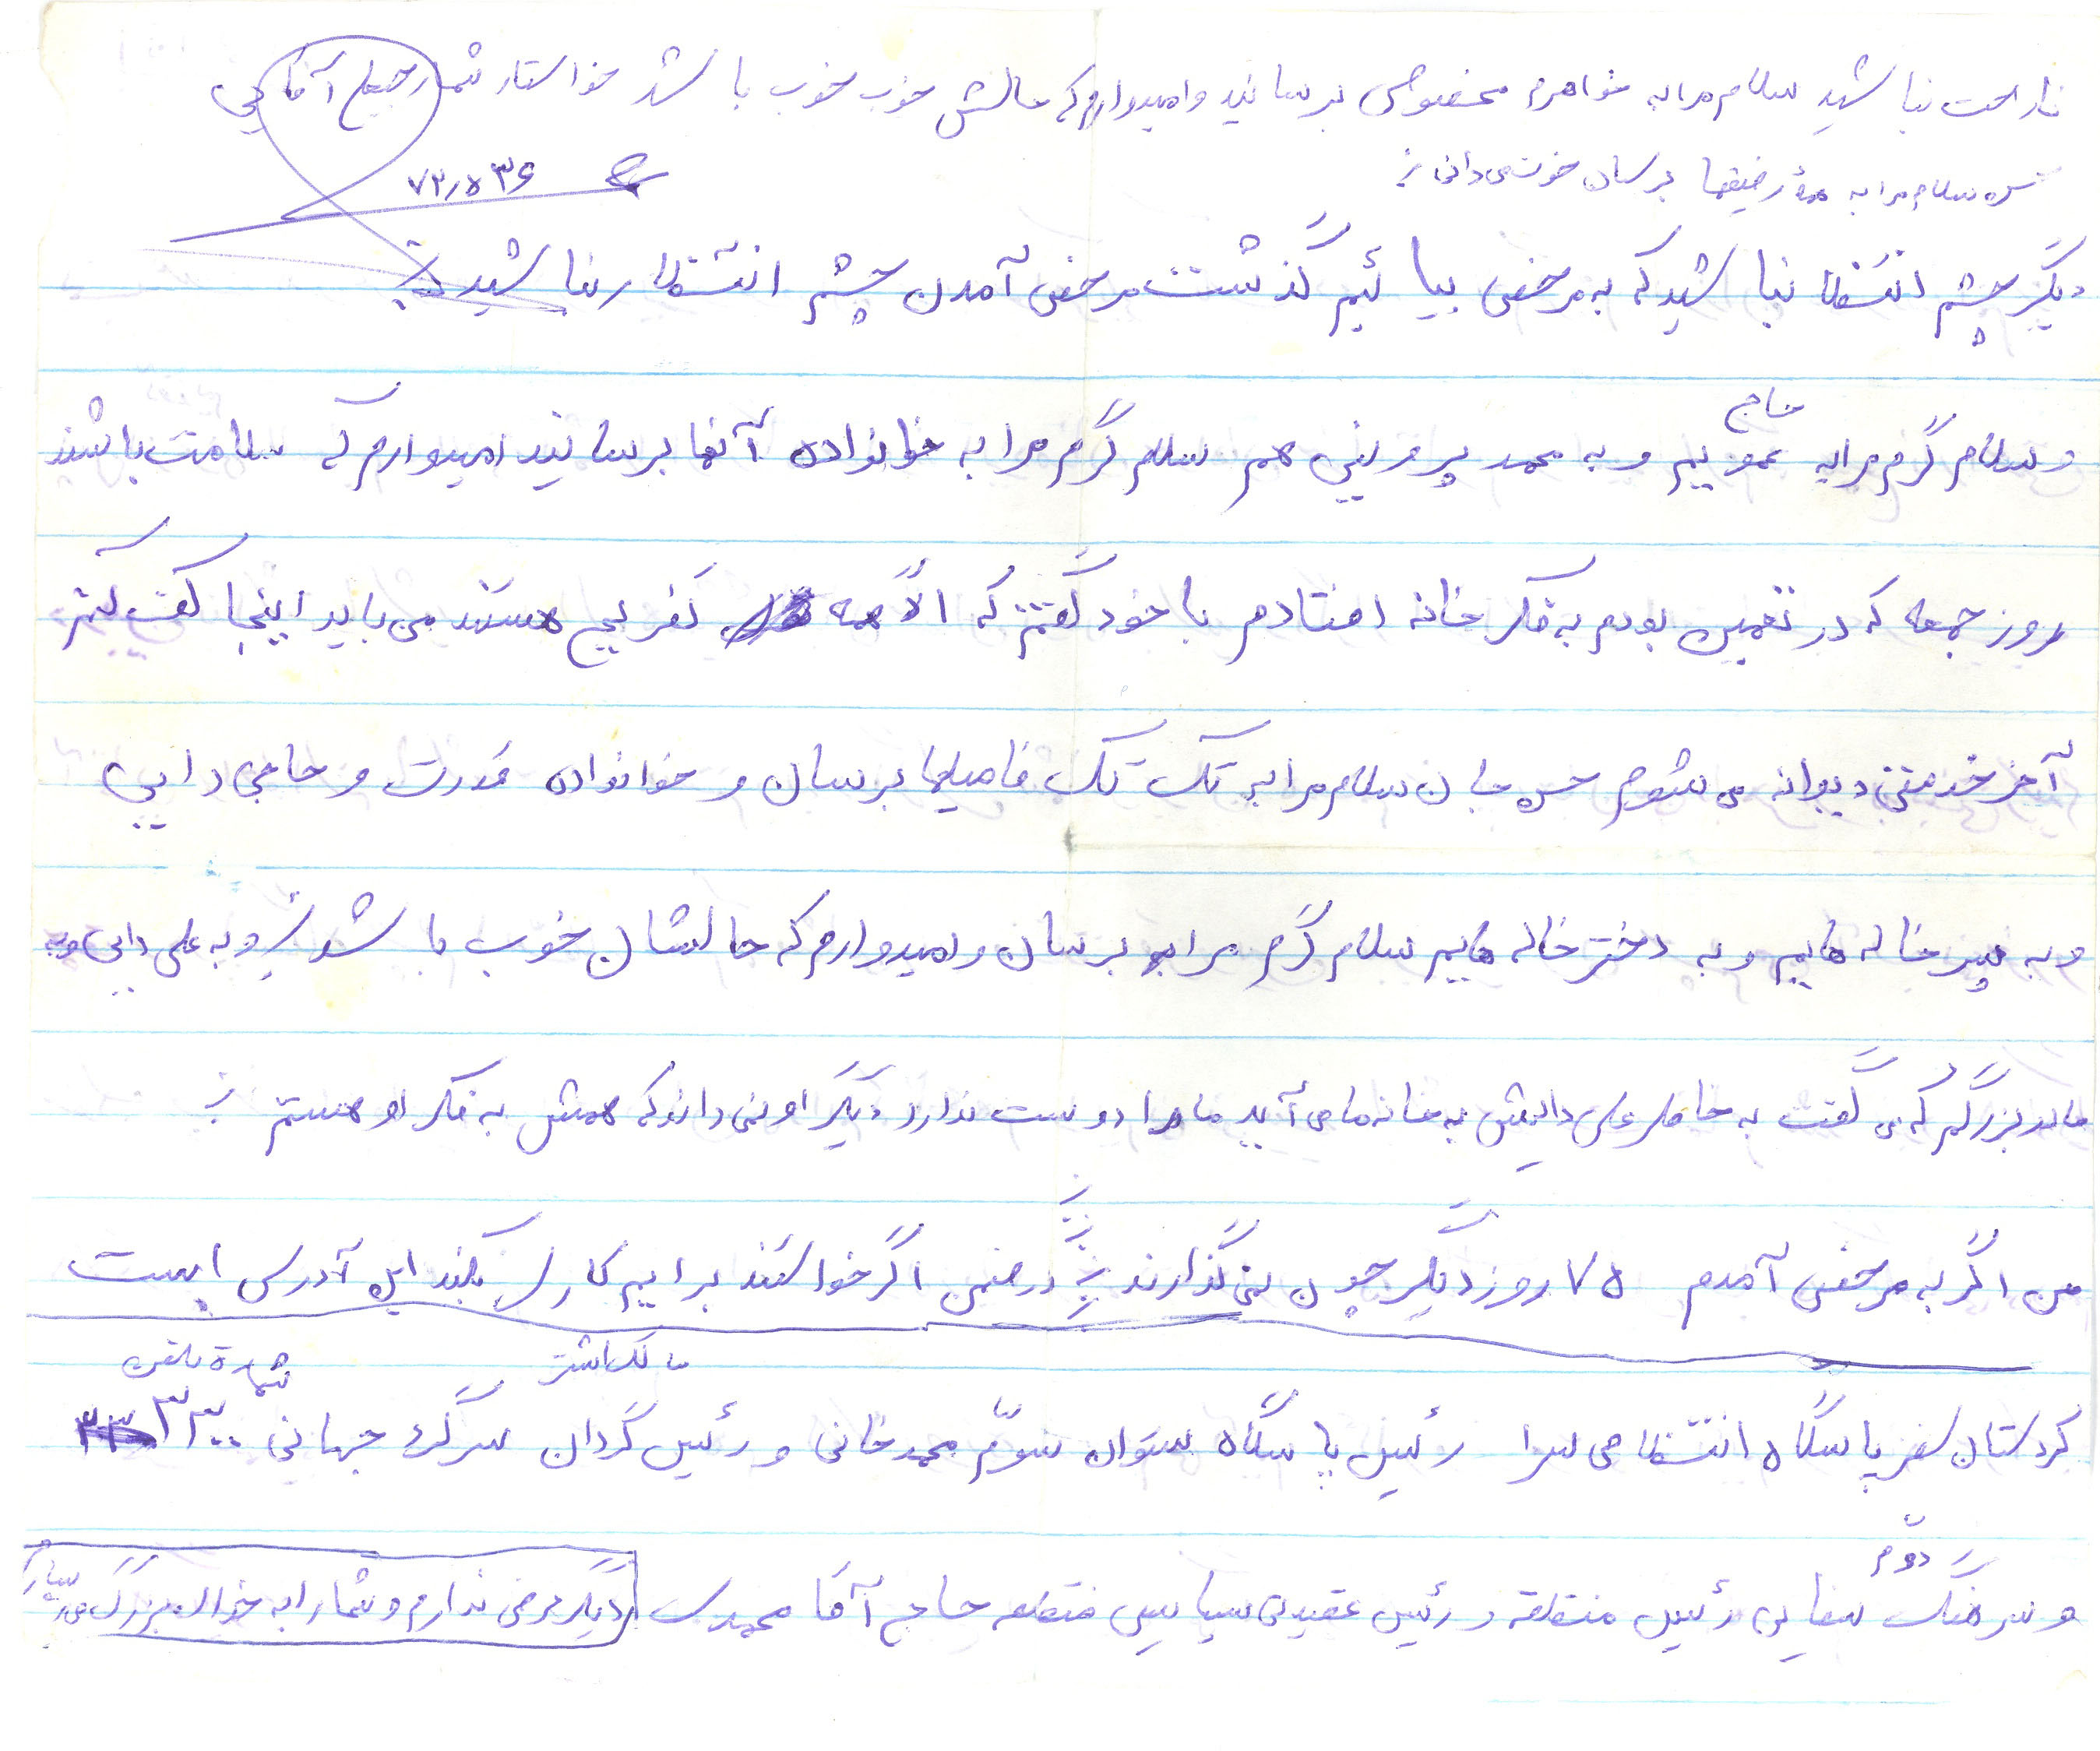 ناراحت نباشید سلام مرا به خواهرم مخصوص برسانید و امیدوارم که حالش خوب خوب باشد خواستار شما رجبعلی آقائی
سلام مرا به همهٔ رفیقها برسان خودت می دانی
۷۳٫۵٫۳۶
دیگر چشم انتظار نباشید که به مرخصی بیائیم گذشت مرخصی آمدن چشم انتظار نباشید
حاج
و سلام گرم مرا به عمویم و به محمد پروینی هم سلام گرم مرا به خانواده آنها برسانید امیدوارم که سلامت باشند
روز جمعه که در تعمین بودم به فکر خانه افتادم با خود گفتم که الآن همه تفریح هستند می باید اینجا
آخر خدمتی دیوانه می شوم حسن جان سلام مرا به تک تک فامیلها برسان و خانواده قدرت و حاجی دایی
و به پسر خاله هایم و به دختر خاله هایم سلام گرم مرا برسان و امیدوارم که حالشان خوب باشد و به علی دایی و به
مادر بزرگم که می گفت به خاطر علی دائیش به خانه ما می آید ما را دوست ندارد دیگر او نمی داند که همش به فکر او هستم
من اگر به مرخصی آمدم ۷۵ روز دیگر چون نمی گذارند در ضمن اگر خواستند برایم کاری بکنند این آدرس است
شمارهٔ تلفن
کردستان سقز پاسگاه انتظامی سرا رئیس پاسگاه ستوان سوّم محمدخانی و رئیس گردان سرگرد جهانی ۳۳۰۰
دوّم
و سرهنگ صفایی رئیس منطقه و رئیس عقیدتی سیاسی منطقه حاج آقا محمدی دیگر عرضی ندارم و شما را به خدای بزرگ می سپارم